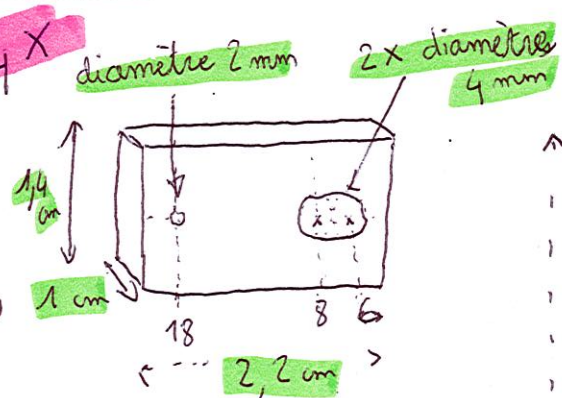 4 X
diamètre 2 mm
2x diamètres
4 mm
1,4
cm
1 cm
18
8
6
2,2 cm